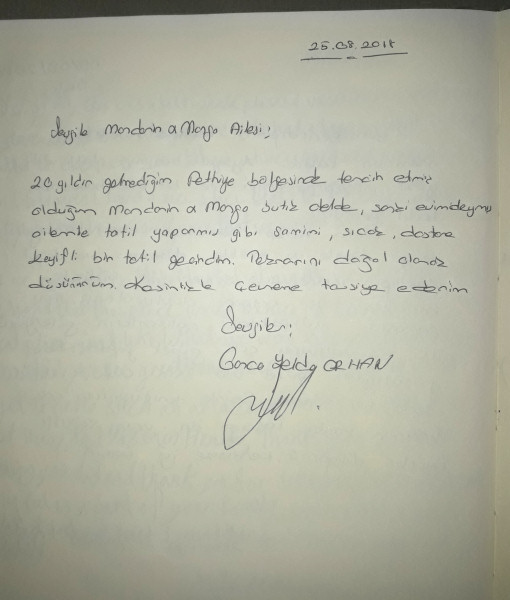 25.08.2018
Sevgili Mandarin & Mango Ailesi;
20 yıldır gelmediğim Fethiye bölgesinde tercih etmiş
olduğum Mandarin & Mango butik otelde, sanki evimdeymiş
ailemle tatil yaparmış gibi samimi, sıcak, dostane
keyifli bir tatil geçirdim. Tekrarını doğal olarak
düşünürüm. Kesinlikle çevreme tavsiye ederim
Sevgiler;
Gonca Yelda ORHAN